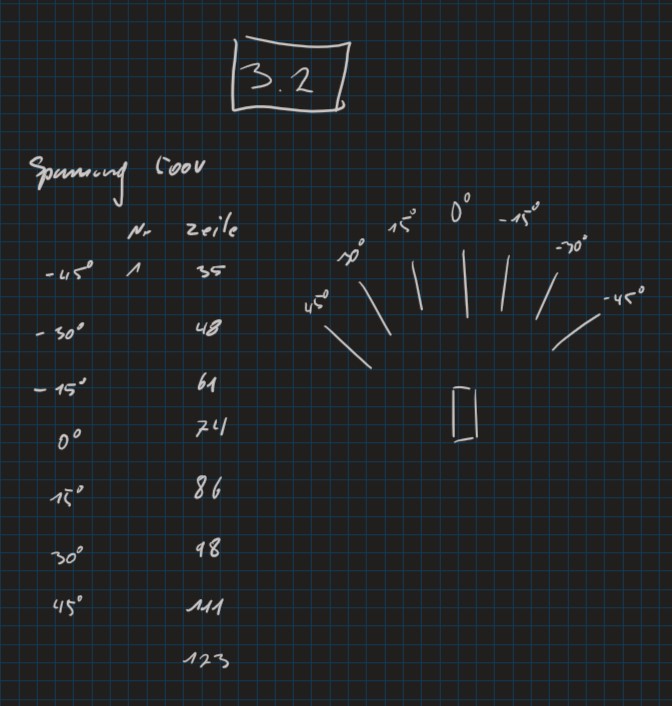 3.2
Spannung 500V
Nr Zeile
-45° 1 35
-30° 48
-15° 61
0° 74
15° 86
30° 98
45° 111
123
45° 30° 15° 0° -15° -30° -45°